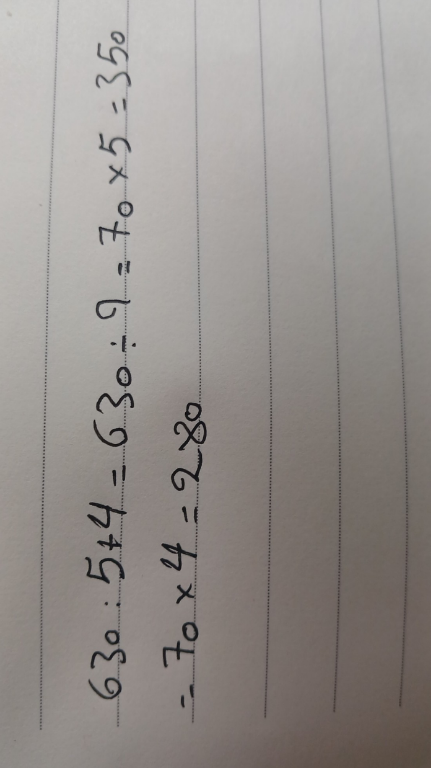 630 : 5+4 = 630 ÷ 9 = 70 × 5 = 350
= 70 × 4 = 280